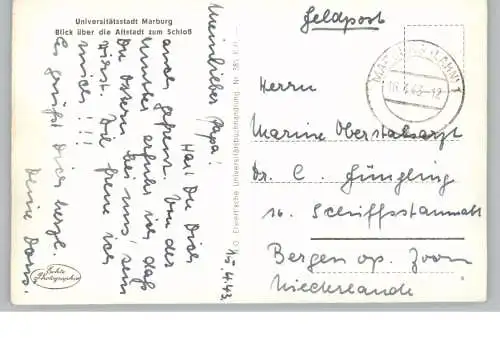 Universitätsstadt Marburg
Blick über die Altstadt zum Schloß
Feldpost
Mein lieber Papa!
Hast Du Dich
auch gefreut. Von der
Mutter erfuhr ich, daß
Du Ostern bei uns sein
wirst. Da freue ich
mich!!!
Es grüßt Dich herzl.
Deine Doris.
15.4.43.
Echte
Photographie
N.G. Elwert'sche Universitätsbuchhandlung, Nr.
MARBURG (LAHN) 1
43-12
Herrn
Marine Oberstabsarzt
Dr. C. Jüngling
16. Schiffsstammabt
Bergen op. Zoom
Niederlande